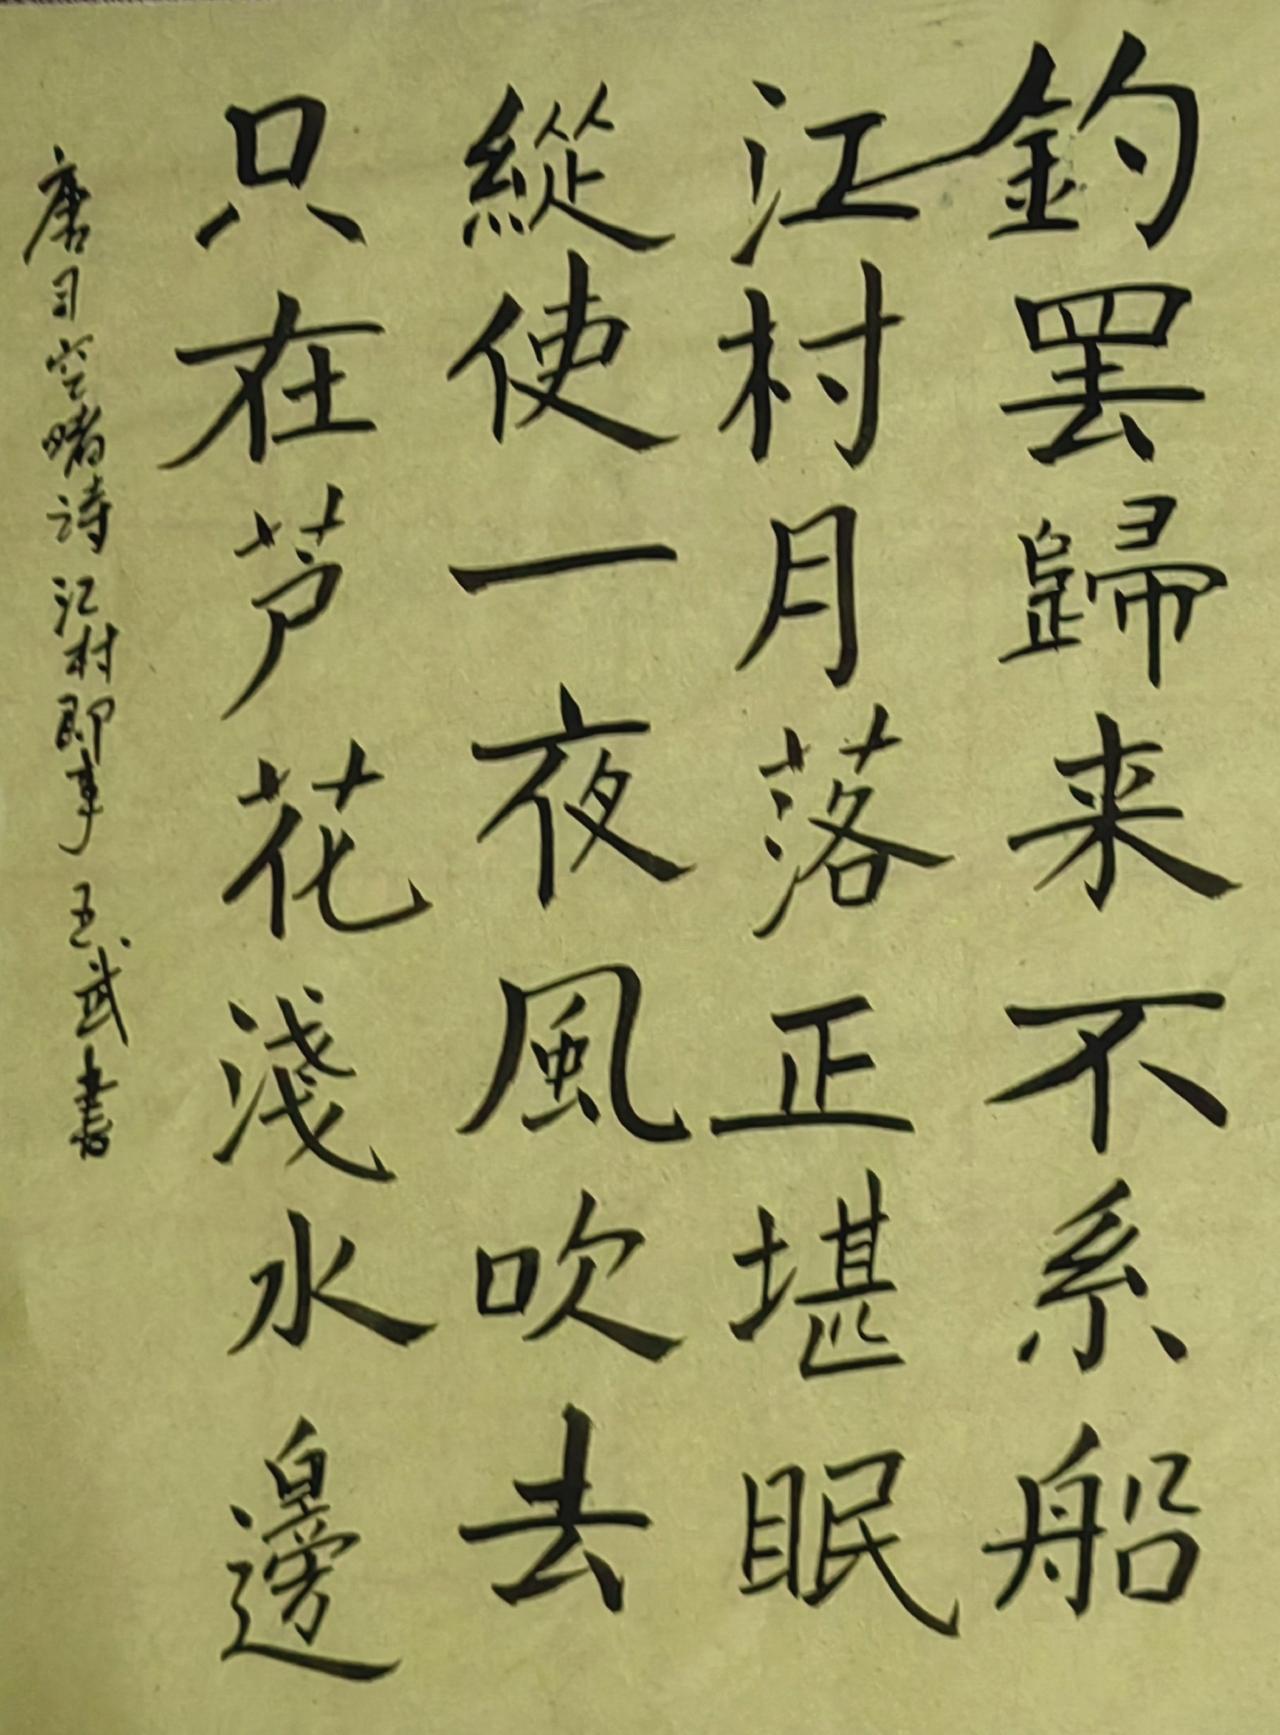 釣罢歸来不系船
江村月落正堪眠
縱使一夜風吹去
只在芦花淺水邊
唐司空曙诗江村即事 玉武書